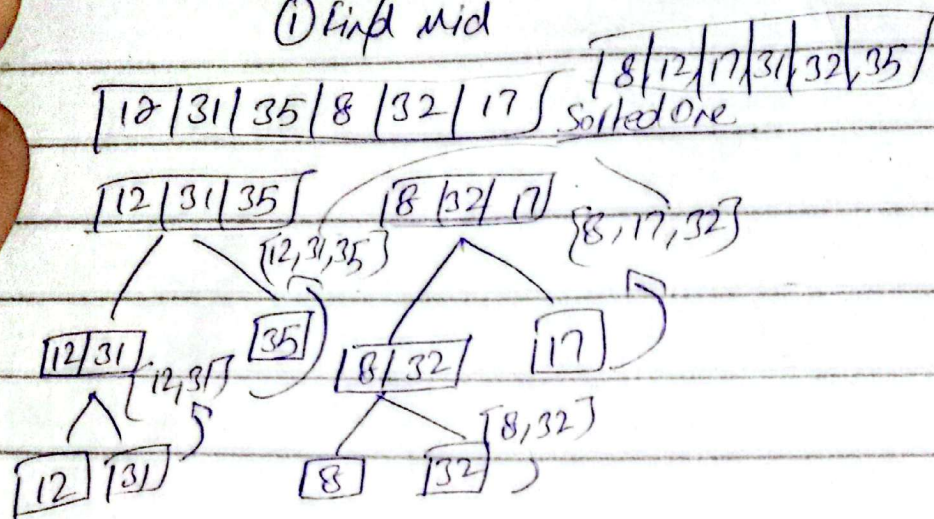 ① Find Mid
8 | 12 | 17 | 31 | 32 | 35
12 | 31 | 35 | 8 | 32 | 17
Sorted One
12 | 31 | 35
8 | 32 | 17
{12, 31, 35}
{8, 17, 32}
12 | 31
{12, 31}
35
8 | 32
17
{8, 32}
12
31
8
32